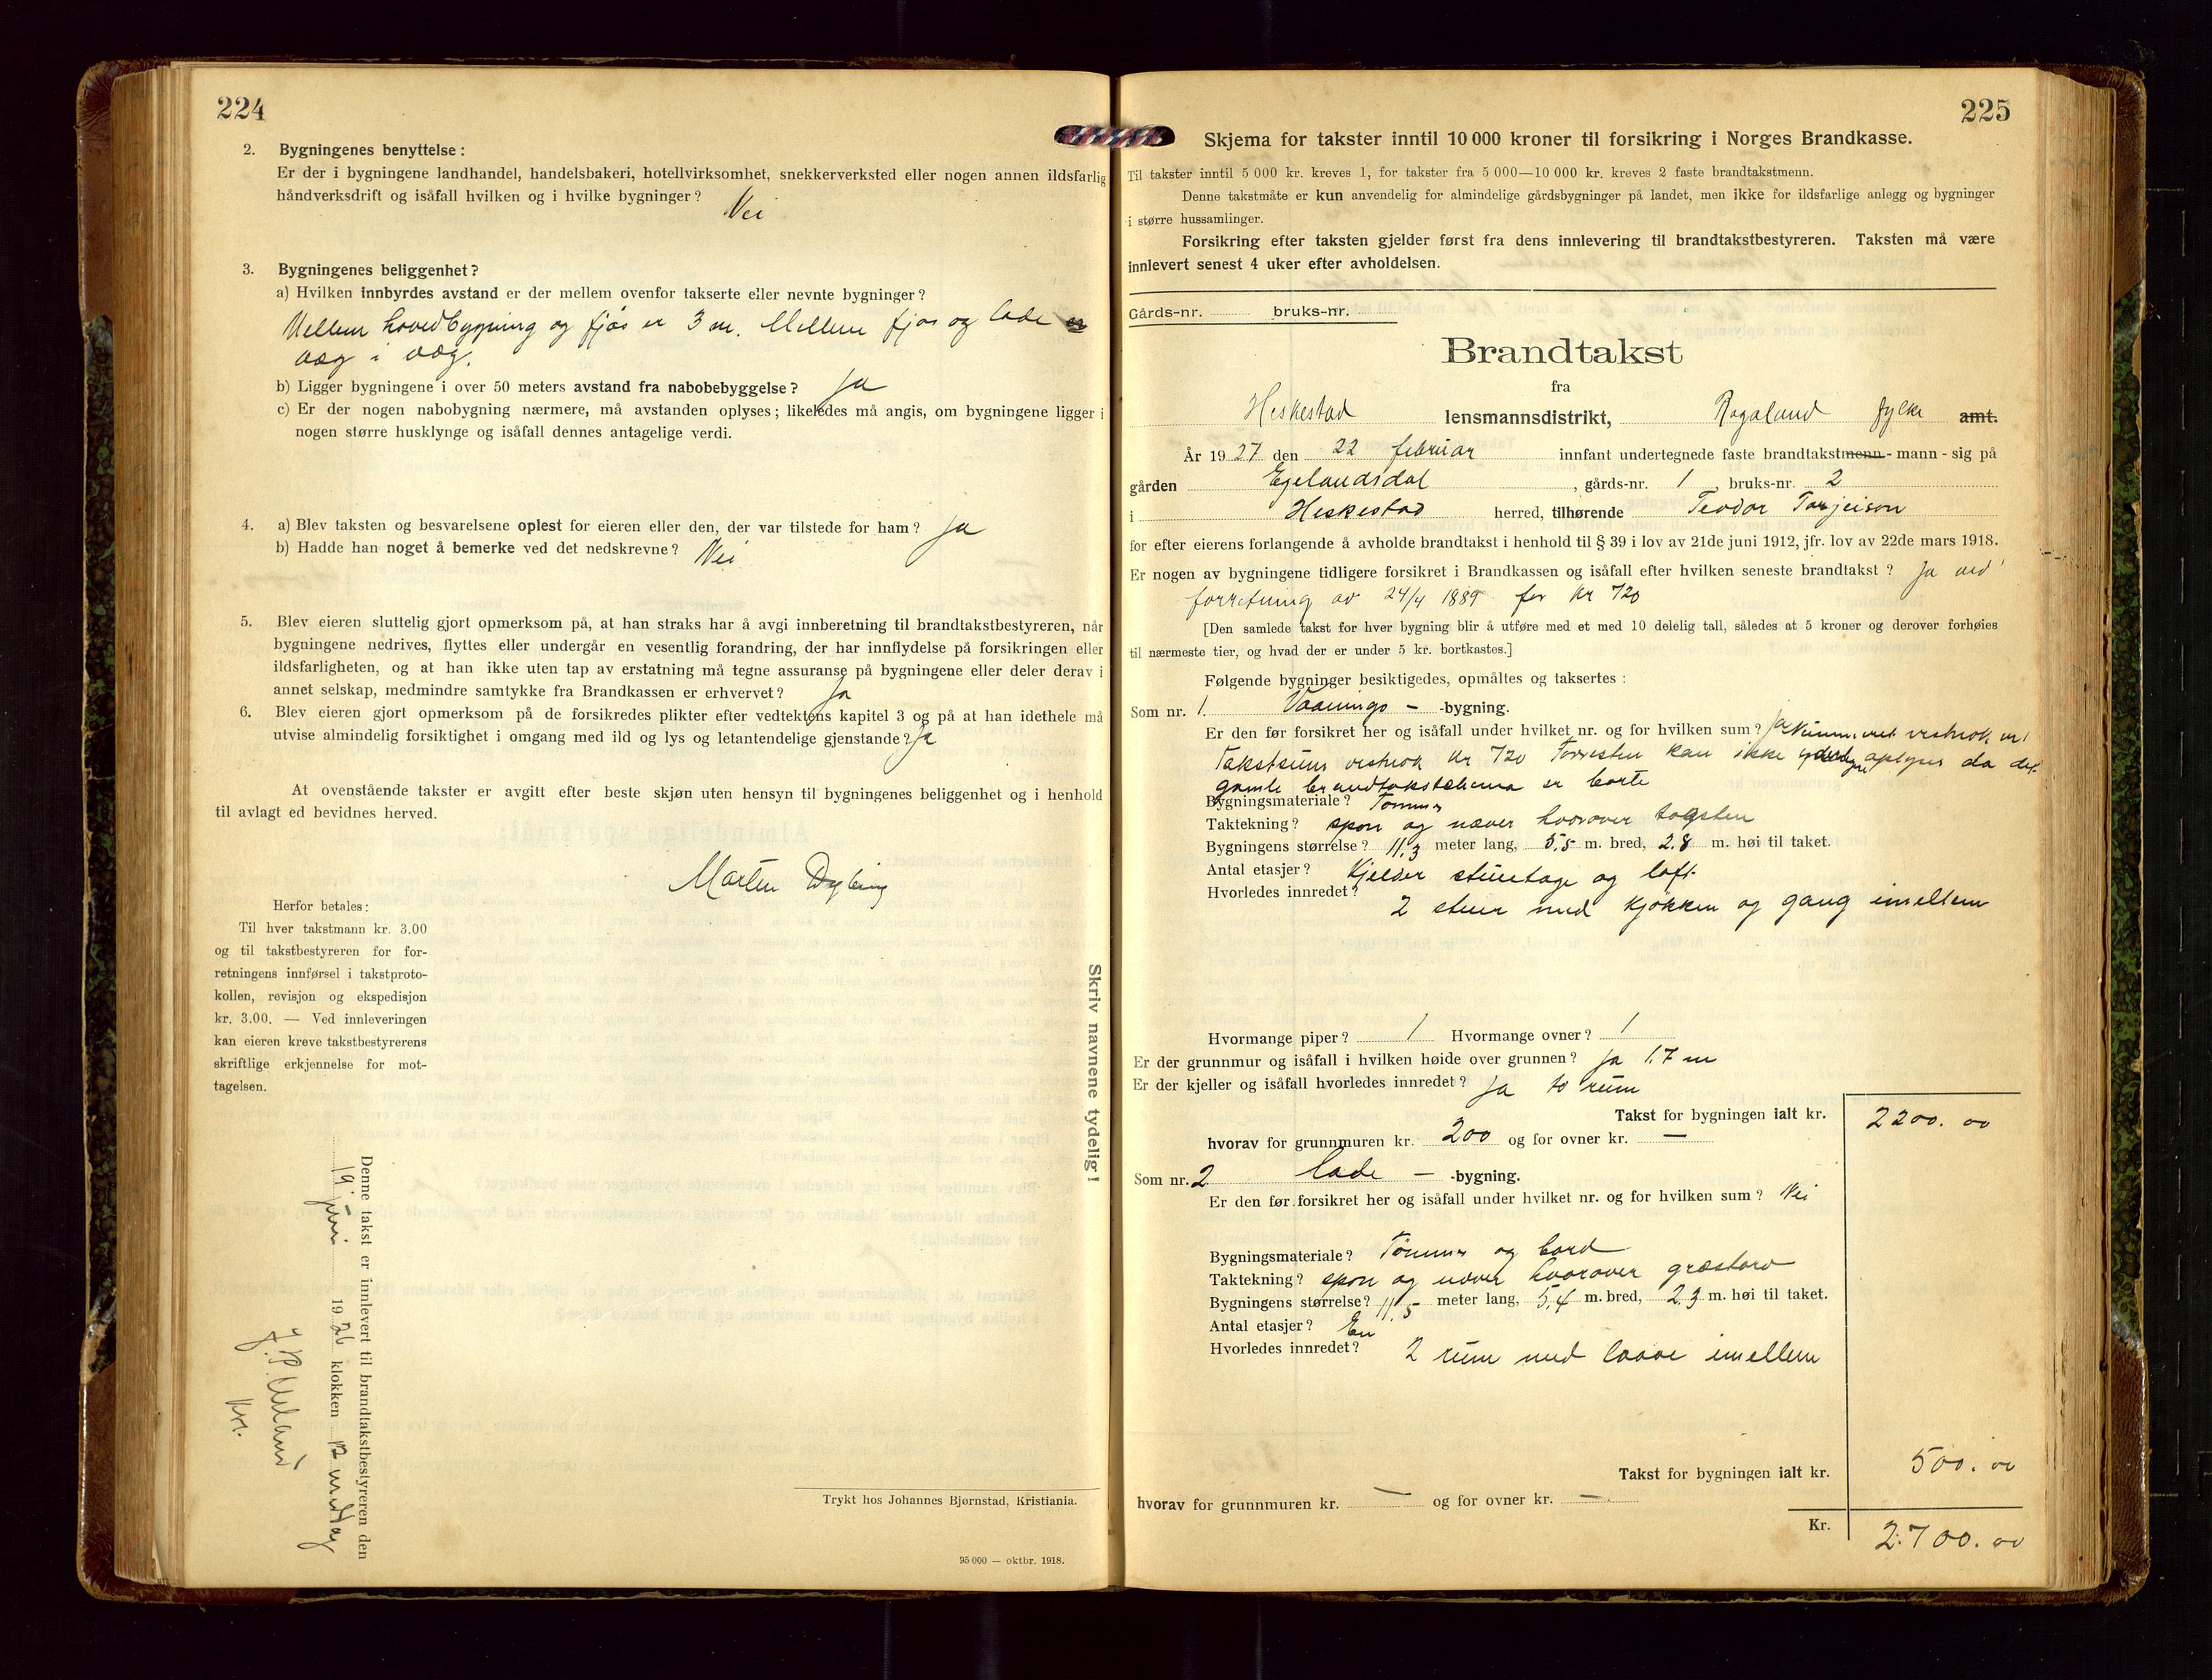 224
2. Bygningenes benyttelse:
Er der i bygningene landhandel, handelsbakeri, hotellvirksomhet, snekkerverksted eller nogen annen ildsfarlig
håndverksdrift og isåfall hvilken og i hvilke bygninger? Nei
3. Bygningenes beliggenhet?
a) Hvilken innbyrdes avstand er der mellem ovenfor takserte eller nevnte bygninger?
Mellem hovedbygning og fjøs er 3 m. Mellem fjøs og lade er
væg i væg.
b) Ligger bygningene i over 50 meters avstand fra nabobebyggelse? Ja
c) Er der nogen nabobygning nærmere, må avstanden oplyses; likeledes må angis, om bygningene ligger i
nogen større husklynge og isåfall dennes antagelige verdi.
4. a) Blev taksten og besvarelsene oplest for eieren eller den, der var tilstede for ham? Ja
b) Hadde han noget å bemerke ved det nedskrevne? Nei
5. Blev eieren sluttelig gjort opmerksom på, at han straks har å avgi innberetning til brandtakstbestyreren, når
bygningene nedrives, flyttes eller undergår en vesentlig forandring, der har innflydelse på forsikringen eller
ildsfarligheten, og at han ikke uten tap av erstatning må tegne assuranse på bygningene eller deler derav i
annet selskap, medmindre samtykke fra Brandkassen er erhvervet? Ja
6. Blev eieren gjort opmerksom på de forsikredes plikter efter vedtektens kapitel 3 og på at han idethele må
utvise almindelig forsiktighet i omgang med ild og lys og letantendelige gjenstande? Ja
At ovenstående takster er avgitt efter beste skjøn uten hensyn til bygningenes beliggenhet og i henhold
til avlagt ed bevidnes herved.
Morten
Herfor betales:
Til hver takstmann kr. 3.00
og til takstbestyreren for for-
retningens innførsel i takstproto-
kollen, revisjon og ekspedisjon
kr. 3.00. — Ved innleveringen
kan eieren kreve takstbestyrerens
skriftlige erkjennelse for mot-
tagelsen.
Denne takst er innlevert til brandtakstbestyreren den
19 juni 1926 klokken 12 middag
Skriv navnene tydelig!
Trykt hos Johannes Bjørnstad, Kristiania.
95 000 — oktbr. 1918.
225
Skjema for takster inntil 10 000 kroner til forsikring i Norges Brandkasse.
Til takster inntil 5 000 kr. kreves 1, for takster fra 5 000—10 000 kr. kreves 2 faste brandtakstmenn.
Denne takstmåte er kun anvendelig for almindelige gårdsbygninger på landet, men ikke for ildsfarlige anlegg og bygninger
i større hussamlinger.
Forsikring efter taksten gjelder først fra dens innlevering til brandtakstbestyreren. Taksten må være
innlevert senest 4 uker efter avholdelsen.
Gårds-nr. bruks-nr.
Brandtakst
fra
Heskestad lensmannsdistrikt, Rogaland fylke amt.
År 1927 den 22 februar innfant undertegnede faste brandtakstmenn - mann - sig på
gården Egelandsdal, gårds-nr. 1, bruks-nr. 2
i Heskestad herred, tilhørende Teodor Torjeison
for efter eierens forlangende å avholde brandtakst i henhold til § 39 i lov av 21de juni 1912, jfr. lov av 22de mars 1918.
Er nogen av bygningene tidligere forsikret i Brandkassen og isåfall efter hvilken seneste brandtakst? Ja ved
forretning av 24/4 1889 for kr 720
[Den samlede takst for hver bygning blir å utføre med et med 10 delelig tall, således at 5 kroner og derover forhøies
til nærmeste tier, og hvad der er under 5 kr. bortkastes.]
Følgende bygninger besiktigedes, opmåltes og taksertes:
Som nr. 1. Vaanings - -bygning.
Er den før forsikret her og isåfall under hvilket nr. og for hvilken sum? Ja
Takstsum kr 720 kan ikke oplyses da det
gamle brandtakstskema er borte
Bygningsmateriale? Tømmer
Taktekning? spon og næver hvorover tagsten
Bygningens størrelse? 11,3 meter lang, 5,5 m. bred, 2,8 m. høi til taket.
Antal etasjer? Kjelder stuetage og loft
Hvorledes innredet? 2 stuer med kjøkken og gang imellem
Hvormange piper? 1 Hvormange ovner? 1
Er der grunnmur og isåfall i hvilken høide over grunnen? Ja 1.7 m
Er der kjeller og isåfall hvorledes innredet? Ja to rum
Takst for bygningen ialt kr. 2200. 00
hvorav for grunnmuren kr. 200 og for ovner kr. —
Som nr. 2 Lade - -bygning.
Er den før forsikret her og isåfall under hvilket nr. og for hvilken sum? Nei
Bygningsmateriale? Tømmer og bord
Taktekning? spon og næver hvorover græstorv
Bygningens størrelse? 11,5 meter lang, 5,4 m. bred, 2,3 m. høi til taket.
Antal etasjer? En
Hvorledes innredet? 2 rum med laave imellem
Takst for bygningen ialt kr. 500. 00
hvorav for grunnmuren kr. — og for ovner kr. —
Kr. 2.700. 00